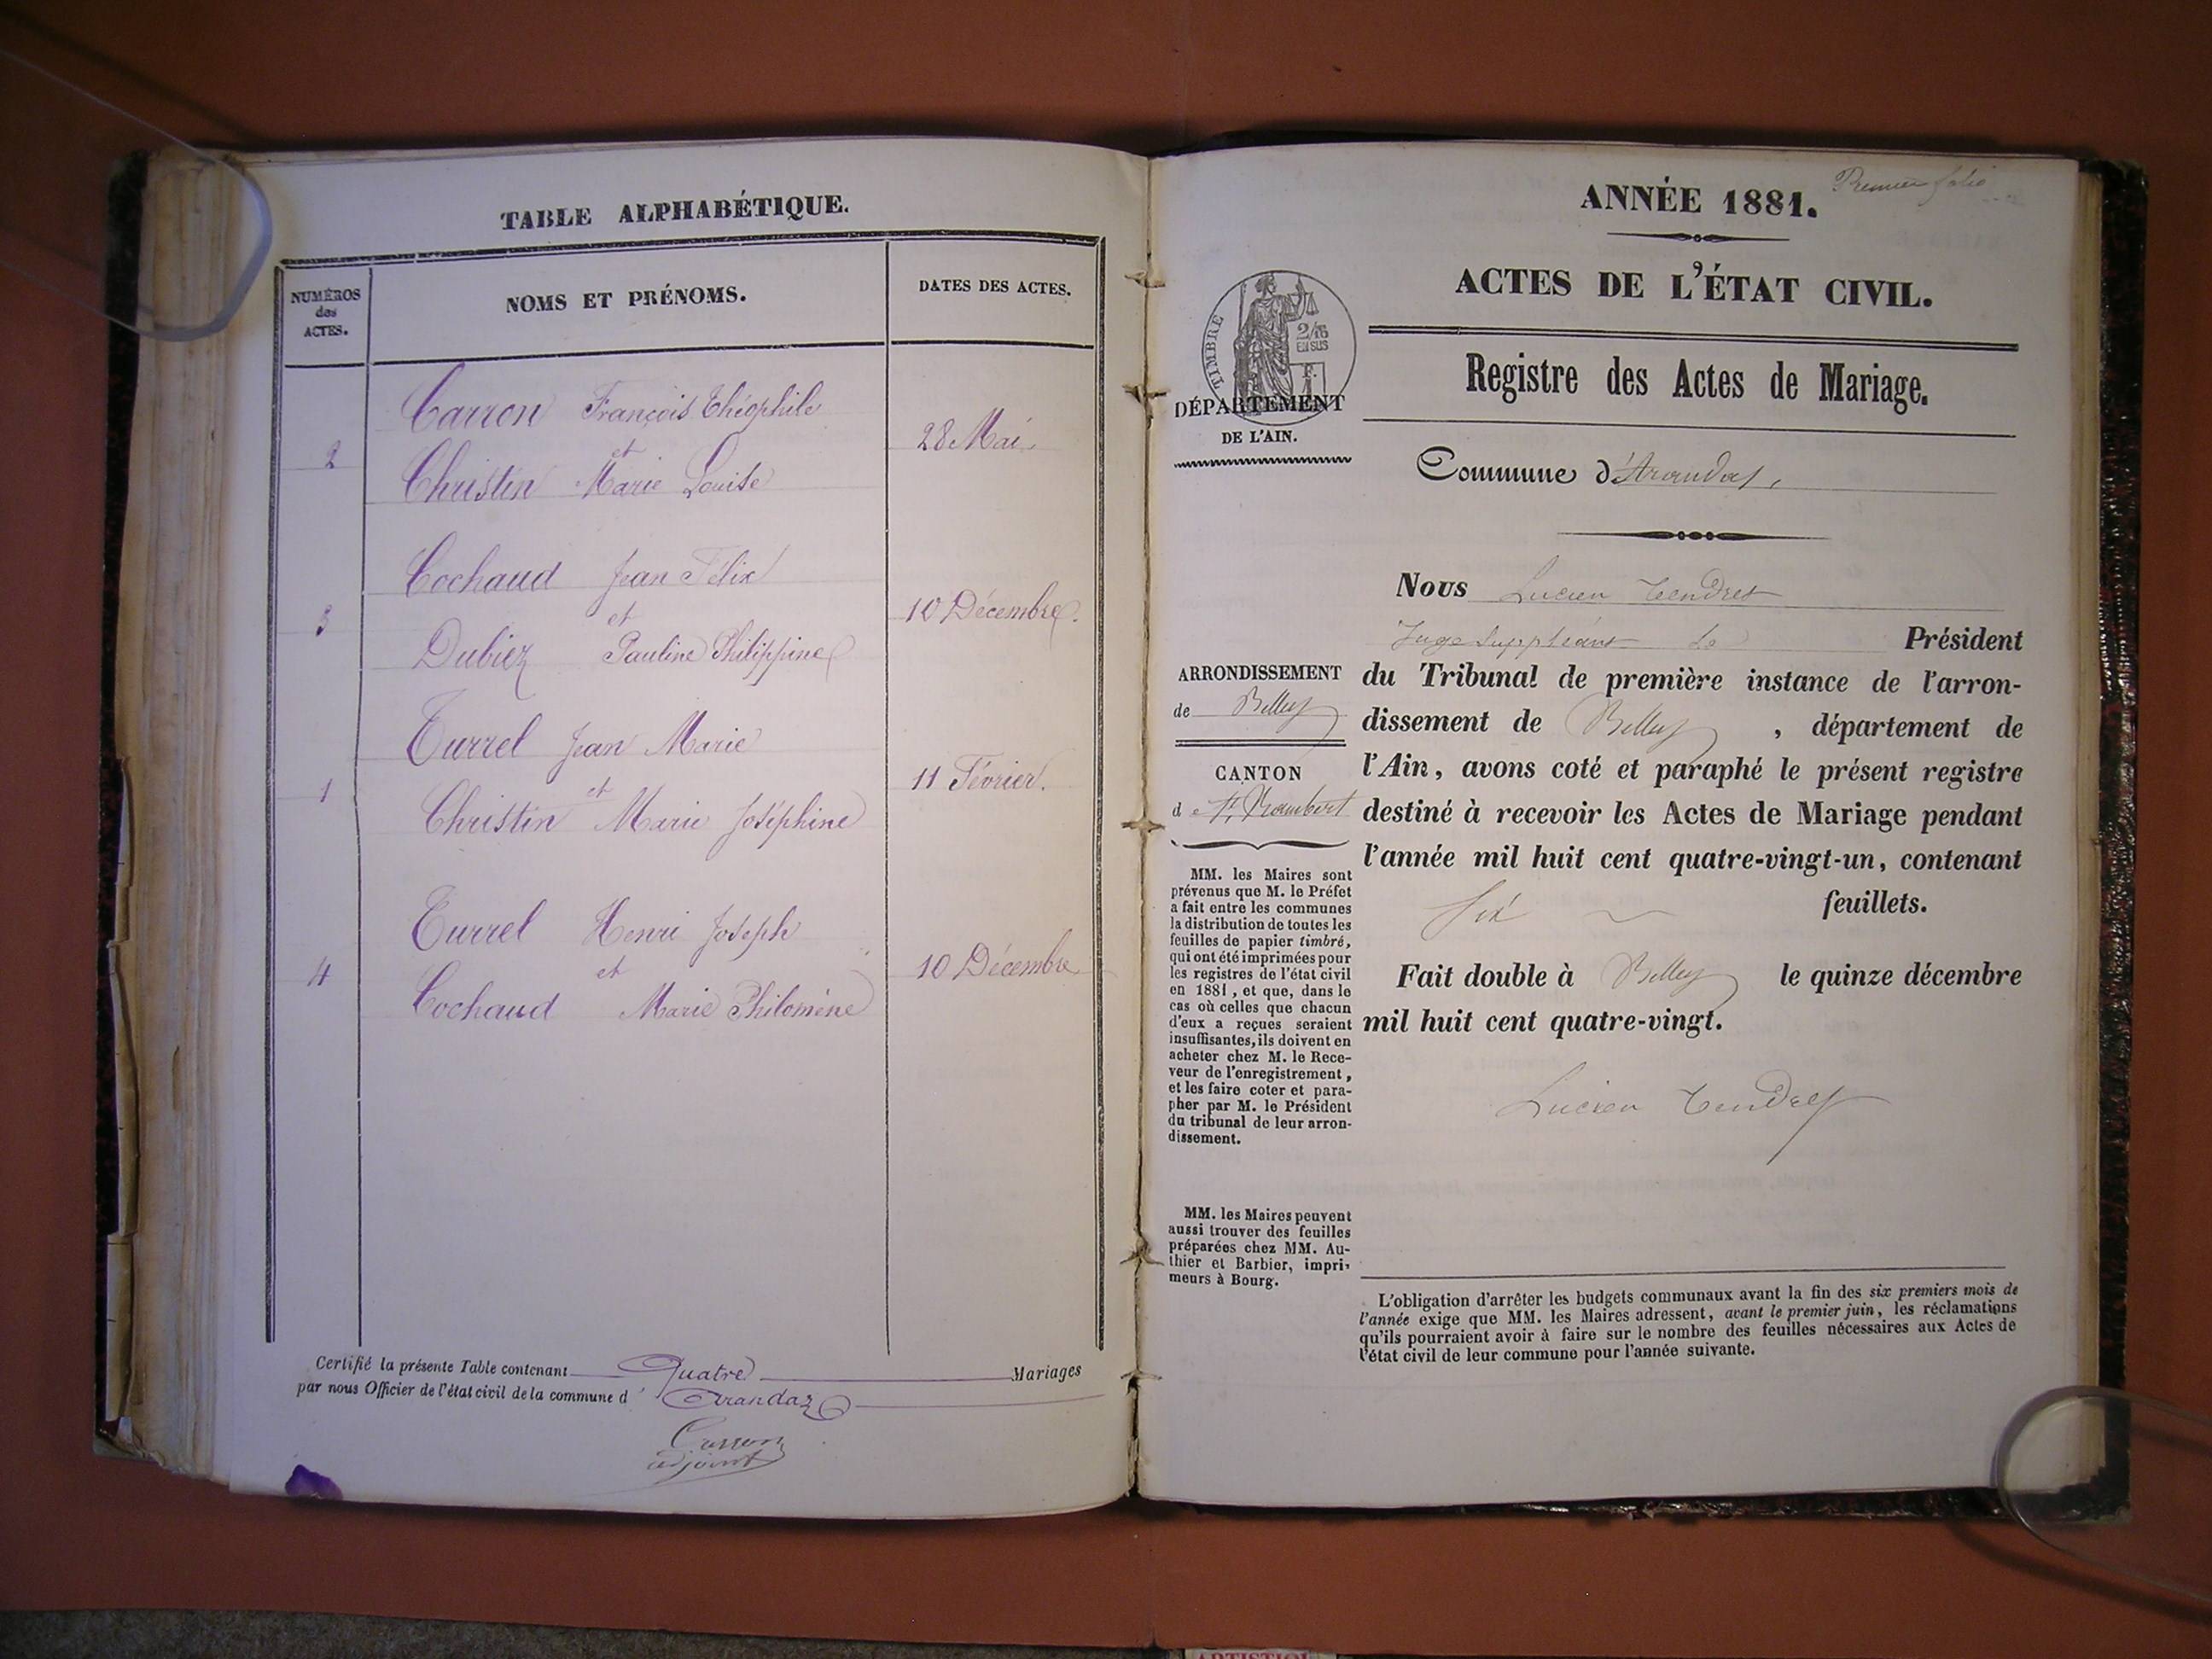 TABLE ALPHABÉTIQUE.
NUMÉROS
des
ACTES.
NOMS ET PRÉNOMS.
DATES DES ACTES.
Carron François Théophile
et
2
28 Mai
Christin Marie Louise
Cochaud Jean Félix
et
3
10 Décembre.
Dubiez Pauline Philippine
Turrel Jean Marie
et
1
11 Février.
Christin Marie Joséphine
Turrel Henri Joseph
et
4
10 Décembre
Cochaud Marie Philomène
Certifié la présente Table contenant Quatre Mariages
par nous Officier de l'état civil de la commune d' Arandaz
adjoint
Premier folio
ANNÉE 1881.
ACTES DE L'ÉTAT CIVIL.
Registre des Actes de Mariage.
TIMBRE
2/10
EN SUS
DÉPARTEMENT
DE L'AIN.
Commune d'Arandas,
Nous Lucien Tendret
Juge Suppléant le Président
du Tribunal de première instance de l'arron-
dissement de Belley, département de
l'Ain, avons coté et paraphé le présent registre
destiné à recevoir les Actes de Mariage pendant
l'année mil huit cent quatre-vingt-un, contenant
Six feuillets.
Fait double à Belley le quinze décembre
mil huit cent quatre-vingt.
Lucien Tendret
ARRONDISSEMENT
de Belley
CANTON
de St Rambert
MM. les Maires sont
prévenus que M. le Préfet
a fait entre les communes
la distribution de toutes les
feuilles de papier timbré,
qui ont été imprimées pour
les registres de l'état civil
en 1881, et que, dans le
cas où celles que chacun
d'eux a reçues seraient
insuffisantes, ils doivent en
acheter chez M. le Rece-
veur de l'enregistrement,
et les faire coter et para-
pher par M. le Président
du tribunal de leur arron-
dissement.
MM. les Maires peuvent
aussi trouver des feuilles
préparées chez MM. Au-
thier et Barbier, impri-
meurs à Bourg.
L'obligation d'arrêter les budgets communaux avant la fin des six premiers mois de
l'année exige que MM. les Maires adressent, avant le premier juin, les réclamations
qu'ils pourraient avoir à faire sur le nombre des feuilles nécessaires aux Actes de
l'état civil de leur commune pour l'année suivante.